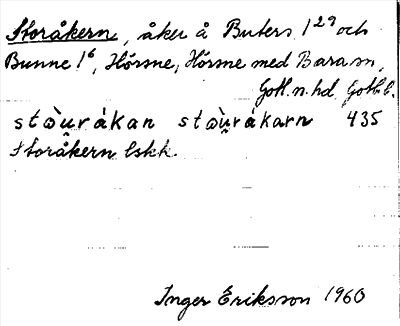 Storåkern, åker å Buters 1²⁹ och
Bunne 1⁶, Hörsne, Hörsne med Bara sn,
Gotl. n. hd, Gotl. l.
stὼu̯rákan stὼu̯rákarn 435
Storåkern Eskk.
Inger Eriksson 1960